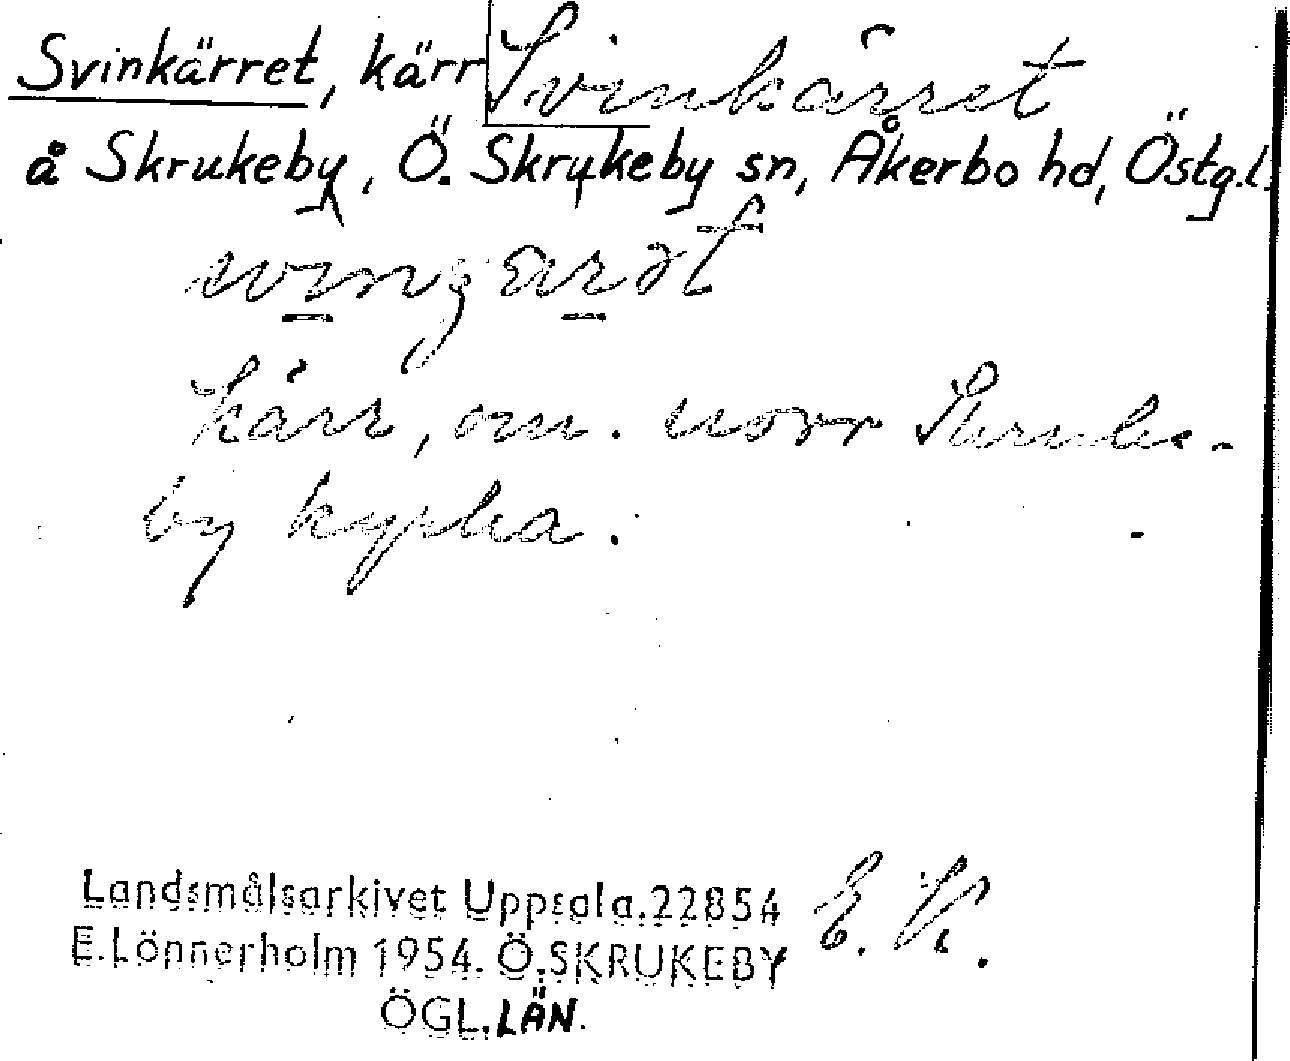 Svinkärret, kärr Svinkärret
å Skrukeby, Ö. Skrukeby sn, Åkerbo hd, Östg.l.
kärr, om. norr Skruke-
by kyrka.
Landsmålsarkivet Uppsala.22854 E.
E.Lönnerholm 1954. Ö.SKRUKEBY
ÖGL.LÄN.